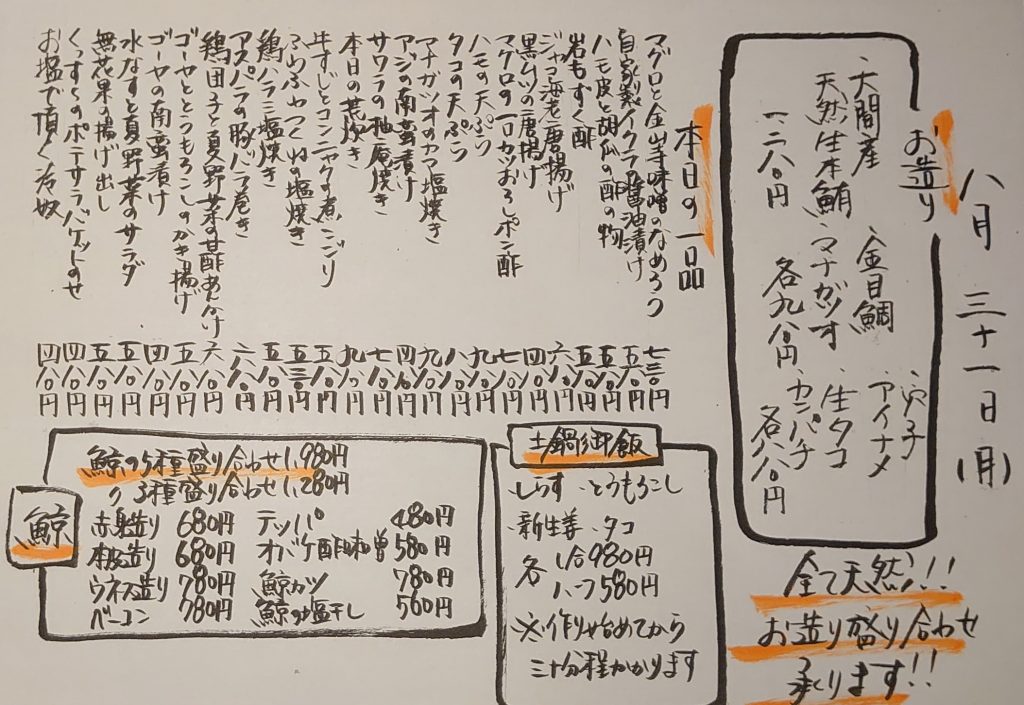 八月三十一日(月)
お造り
・大間産 ・金目鯛 ・穴子
天然生本鮪 ・マナガツオ ・アイナメ
一二八〇円 各九八〇円 ・生タコ
・カンパチ
各八八〇円
全て天然!!
お造り盛り合わせ
承ります!!
本日の一品
マグロと金山寺味噌のなめろう 七三〇円
自家製イクラ醤油漬け 五八〇円
ハモ皮と胡瓜の酢の物 五八〇円
岩もずく酢 五八〇円
ジャコ海老唐揚げ 六八〇円
黒ムツの唐揚げ 四八〇円
マグロの一口カツおろしポン酢 七八〇円
ハモの天ぷら 九八〇円
タコの天ぷら 八八〇円
マナガツオのカマ塩焼き 九八〇円
アジの南蛮漬け 四八〇円
サワラの柚庵焼き 七八〇円
本日の荒炊き 九八〇円
牛すじとコンニャクの煮こごり 五八〇円
ふわふわつくねの塩焼き 五三〇円
鶏ハラミ塩焼き 五八〇円
アスパラの豚バラ巻き 六八〇円
鶏団子と夏野菜の甘酢あんかけ 六八〇円
ゴーヤととうもろこしのかき揚げ 五八〇円
ゴーヤの南蛮漬け 四八〇円
水なすと夏野菜のサラダ 五八〇円
無花果の揚げ出し 五八〇円
くんすらのポテサラバケットのせ 四八〇円
お塩で頂く冷奴 四八〇円
土鍋御飯
・しらす ・とうもろこし
・新生姜 ・タコ
各 1合980円
ハーフ580円
※作り始めてから
三十分程かかります
鯨
鯨の5種盛り合わせ1,980円
〃 3種盛り合わせ1,280円
赤身造り 680円 テッパ 480円
本皮造り 680円 オバケ酢味噌 580円
ウネス造り 780円 鯨カツ 780円
ベーコン 780円 鯨の塩干し 560円